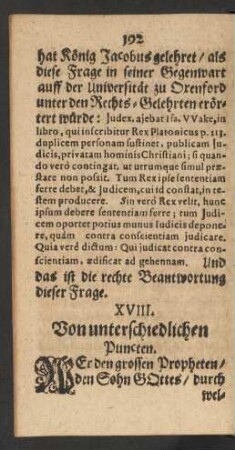 192
hat König Jacobus gelehret / als
diese Frage in seiner Gegenwart
auff der Universität zu Orenford
unter den Rechts-Gelehrten erör-
tert würde: Judex, ajebat Isa. VVake, in
libro, qui inscribitur Rex Platonicus p. 113.
duplicem personam sustinet, publicam Ju-
dicis, privatam hominis Christiani; si quan-
do verò contingat, ut utrumque simul præ-
stare non possit. Tum Rex ipse sententiam
ferre debet, & Judicem, cui id constat, in te-
stem producere. Sin verò Rex velit, hunc
ipsum debere sententiam ferre; tum Judi-
cem oportet potius munus Judicis depone-
re, quàm contra conscientiam judicare.
Quia verè dictum: Qui judicat contra con-
scientiam, ædificat ad gehennam. Und
das ist die rechte Beantwortung
dieser Frage.
XVIII.
Von unterschiedlichen
Puncten.
WEr den grossen Propheten /
den Sohn GOttes / durch
wel-